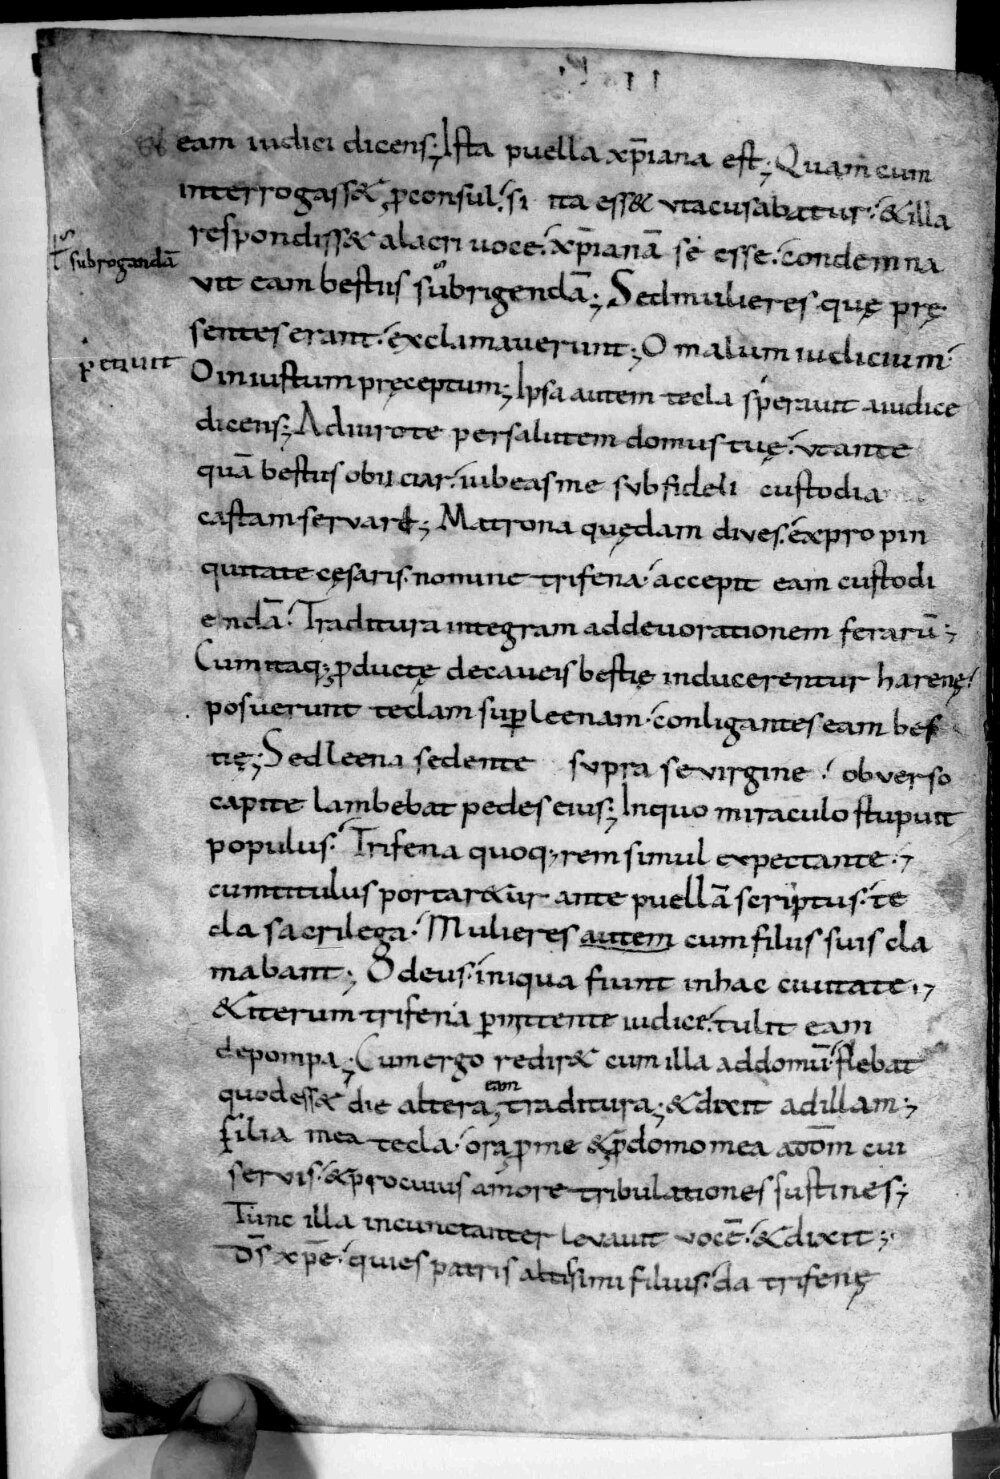 eam iudici dicens; Ista puella xp̄iana est; Quam cum
interrogass& ꝓconsul. si ita ess& ut acusabatur. & illa
respondiss& alacri uoce. xp̄ianā se esse. condemna
ł subrogandā
vit eam bestiis subrigendā; Sed mulieres quę prę
sentes erant. exclamauerunt; O malum iudicium.
petiuit
O iniustum pręceptum; Ipsa autem tecla sperauit a iudice
dicens; Adiuro te per salutem domus tuę. ut ante
quā bestiis obiiciar. iubeas me sub fideli custodia
castam seruare; Matrona quędam dives. ex propin
quitate cęsaris. nomine trifena. accepit eam custodi
endā. Traditura integram ad deuorationem ferarū;
Cum itaq; ꝓductę de caueis bestię inducerentur harenę.
posuerunt teclam suꝑ leenam. conligantes eam bes
tię; Sed leena sedente supra se virgine. obverso
capite lambebat pedes eius; In quo miraculo stupuit
populus. Trifena quoq; rem simul expectante.;
cum titulus portar&ur ante puellā scriptus. te
cla sacrilega. Mulieres autem cum filiis suis cla
mabant; O deus. iniqua fiunt in hac ciuitate.;
& iterum trifena ꝑmittente iudice. tulit eam
de pompa; Cum ergo redir& cum illa ad domū. flebat
quod ess& die altera eam traditura; & dixit ad illam;
filia mea tecla. ora ꝓ me & ꝓ domo mea ad dm̄ cui
servis. & pro cuius amore tribulationes sustines;
Tunc illa incunctanter levauit vocē. & dixit;
Ds̄ xp̄e. quies patris altissimi filius. da trifenę